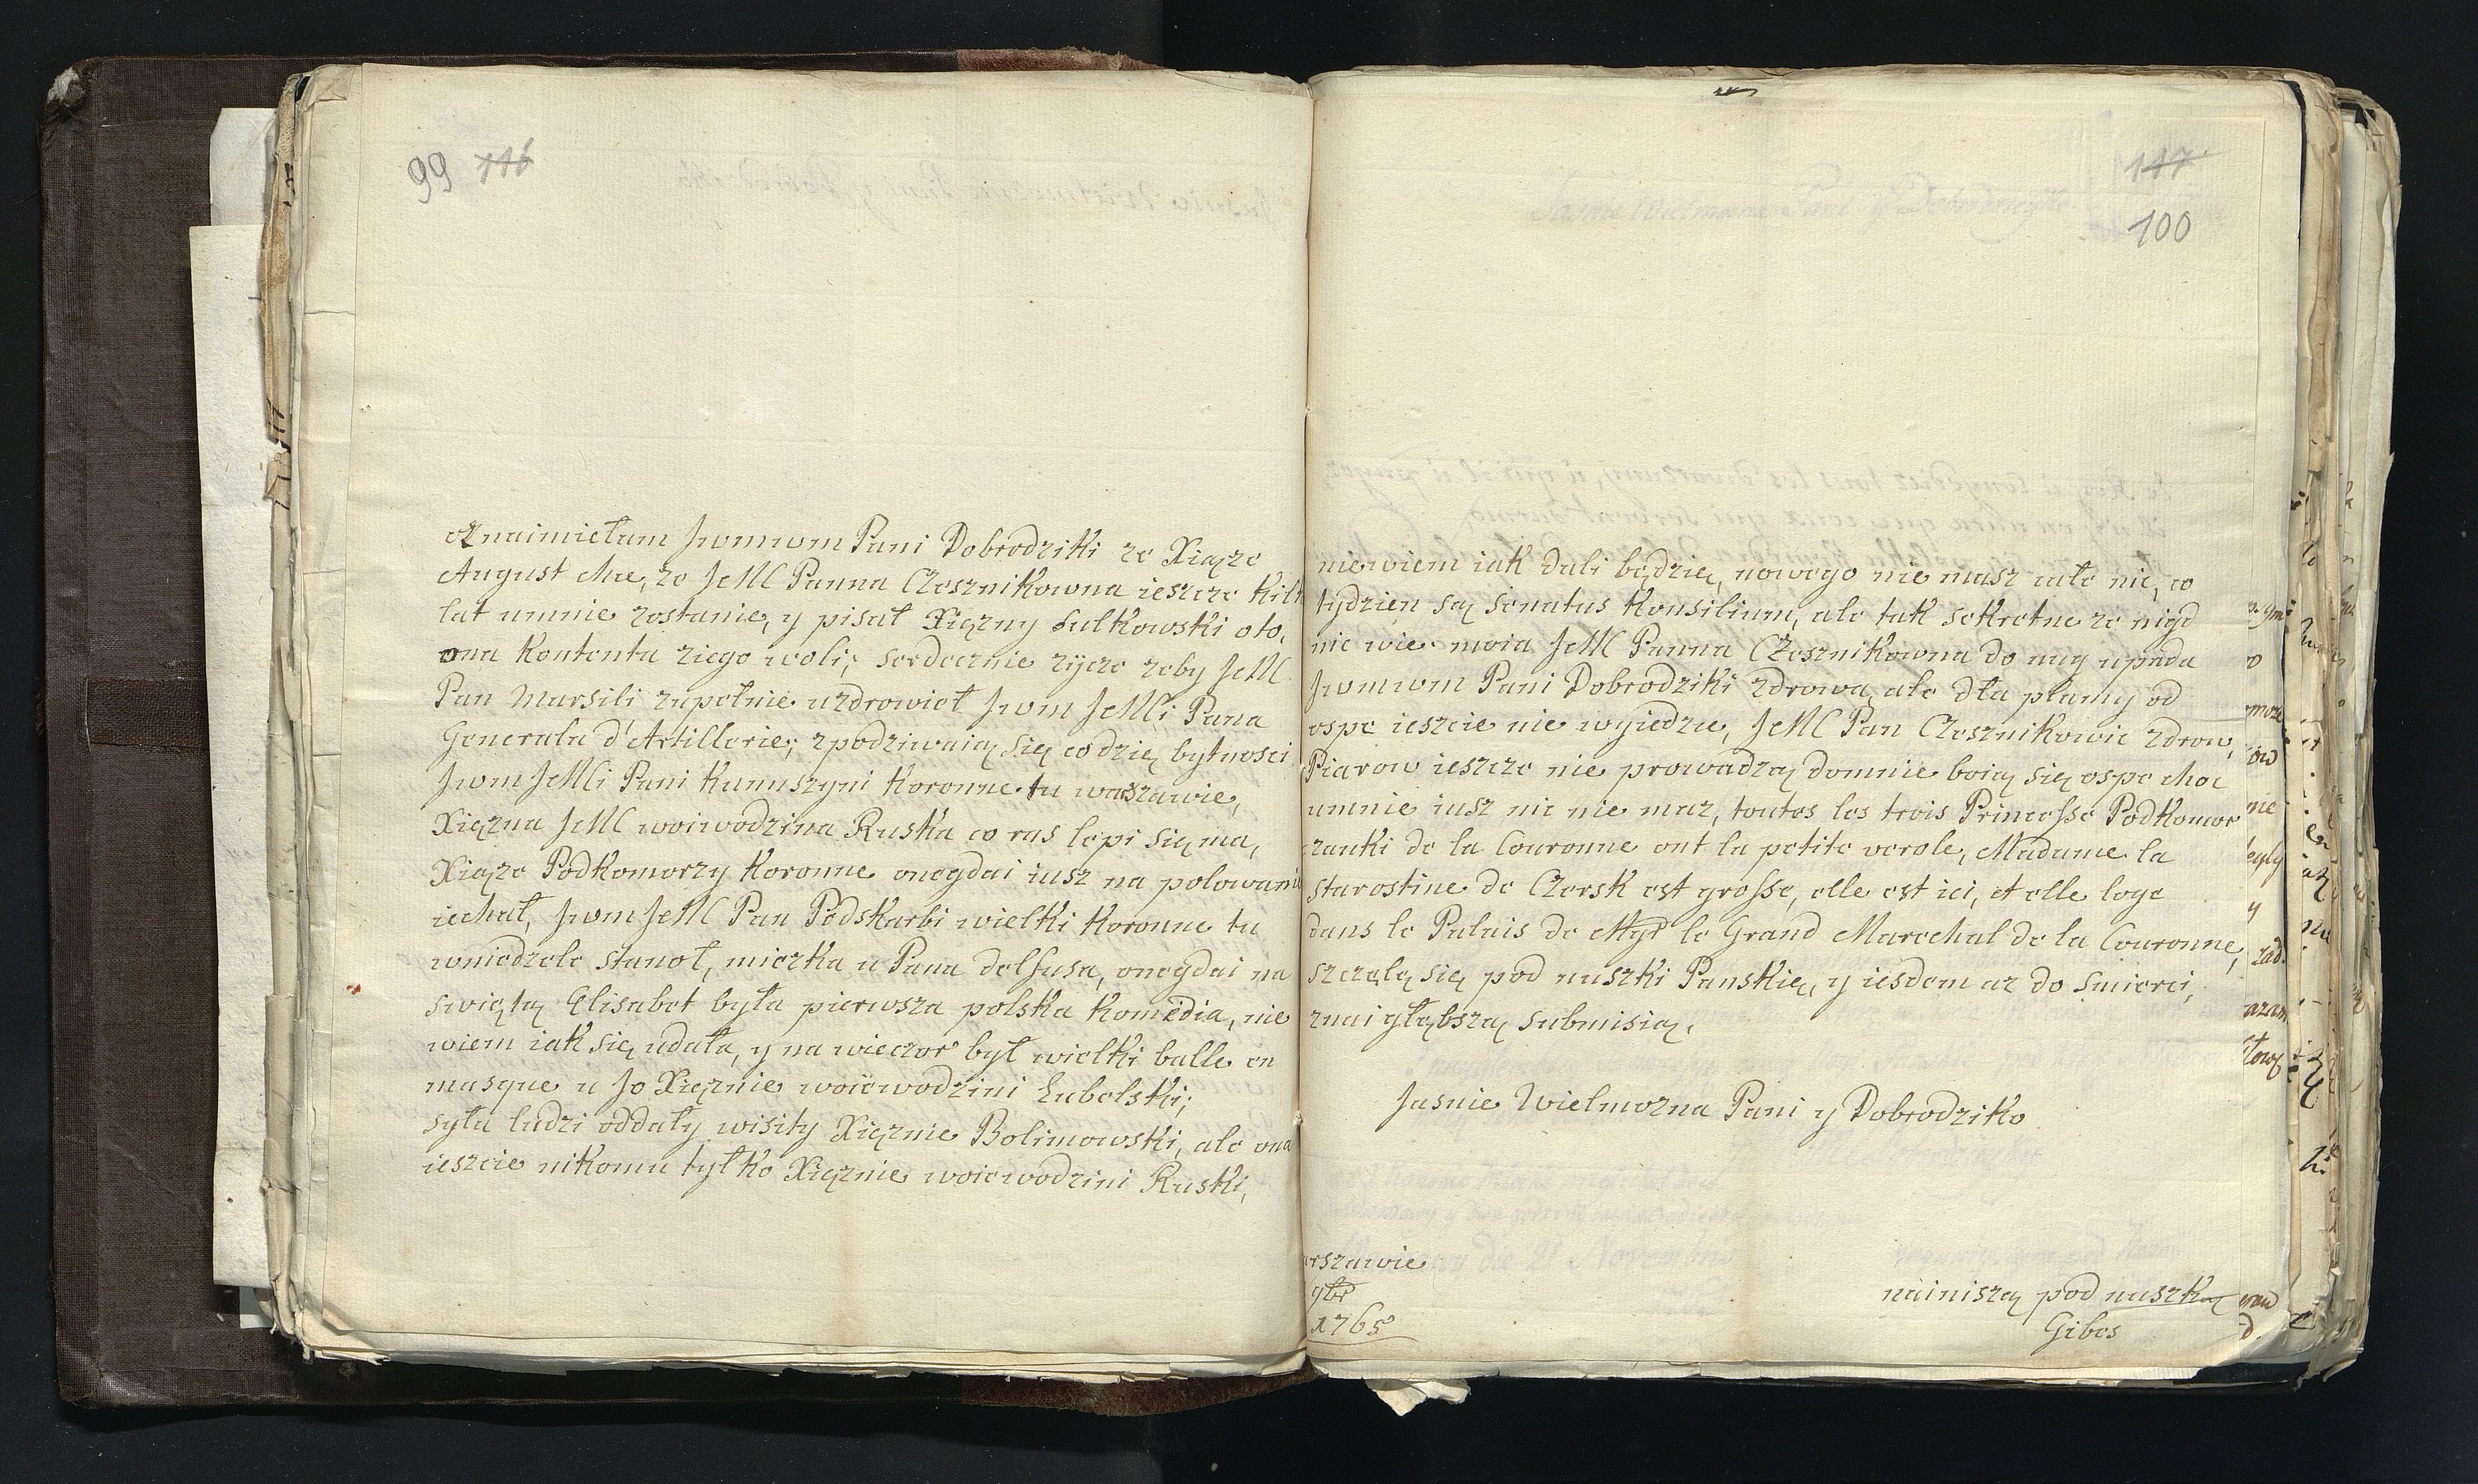 99 116
oznaimiełam Jwmwm Pani Dobrodziki ze Xiąze
August chce, ze JeMC Panna Czesznikowna ieszcze kilk
lat umnie zostanie, y pisał Xięzny Sulkowski oto,
ona Kontenta ziego woli; serdecznie zÿcze zeby JeMC
Pan Marsili zupełnie uzdrowieł Jwm JeMCi Pana
Generala d'Artillerie; zpodziwaią się codzię bytnosci
Jwm JeMCi Pani Kunuszyni Koronne tu warszawie,
Xięzna JeMC woiwodzina Ruska co ras lepi się ma,
Xiąze Podkomorzy Koronne onegdai iusz na polowanie
iechał, Jwm JeMC Pan Podskarbi wielki Koronne tu
wniedzele stanoł, mieczka u Pana delfusa, onegdai na
swiętą Elisabet była pierwsza polska Komedia, nie
wiem iak się udała, y na wieczor był wielki balle en
masque u Jo Xięznie woiewodzini Lubelski;
syła ludzi oddały wisity Xięznie Bolimowski, ale ona
ieszcie nikomu tylko Xięznie woiewodzini Ruski,
117
100
niewiem iak dali będzie, nowego nie masz cale nic, co
tydzien są Senatus Konsilium, ale tak sekretne ze nigd
nic wie. moia JeMC Panna Czesznikowna do nug upada
Jwmwm Pani Dobrodziki zdrowa, ale dla plamy od
ospe ieszcie nie wyiedzie, JeMC Pan Czesznikowic zdrow,
Piarow ieszcze nie prowadzą domnie boią się ospe choc
umnie iusz nic nie maz, toutes les trois Princesse Podkomor
zanki de la Couronne ont la petite verole, Madame la
starostine de Czersk est grosse, elle est ici, et elle loge
dans le Palais de Mgr le Grand Marechal de la Couronne,
szczelę się pod nuszki Panskie, y iesdem az do smierci,
znaigłąbszą submisią,
Jasnie Wielmozna Pani y Dobrodziko
rszawie
9br
1765
nainiszą pod nuszką
Gibes